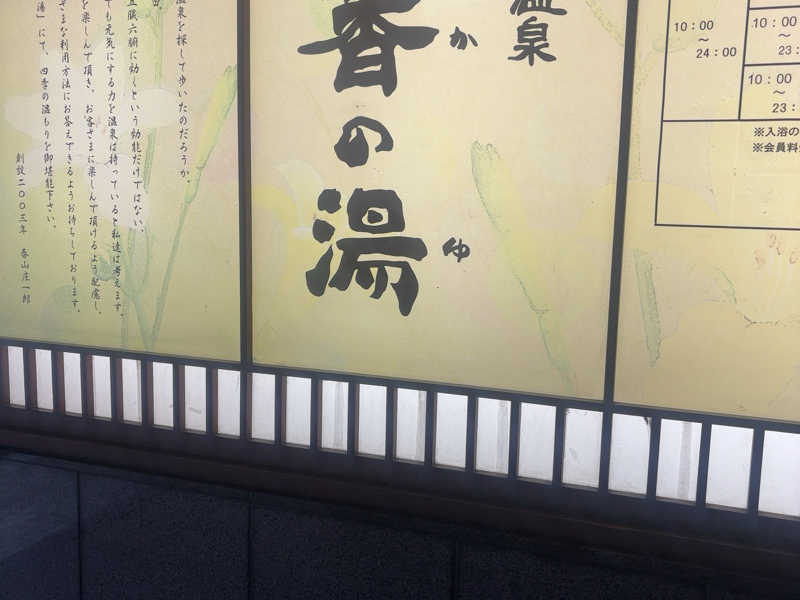 温泉
香の湯
か
ゆ
温泉を探して歩いたのだろうか。
五臓六腑に効くという効能だけではない、
ても元気にする力を温泉は持っていると私達は考えます。
を楽しんで頂き、お客さまに楽しんで頂けるよう配慮し、
さまざまな利用方法にお答えできるようお待ちしております。
湯」にて、四季の温もりを御堪能下さい。
創設二〇〇三年 香山庄一郎
10:00
〜
24:00
10:00
〜
23:
10:00
〜
23:
※入浴の
※会員料